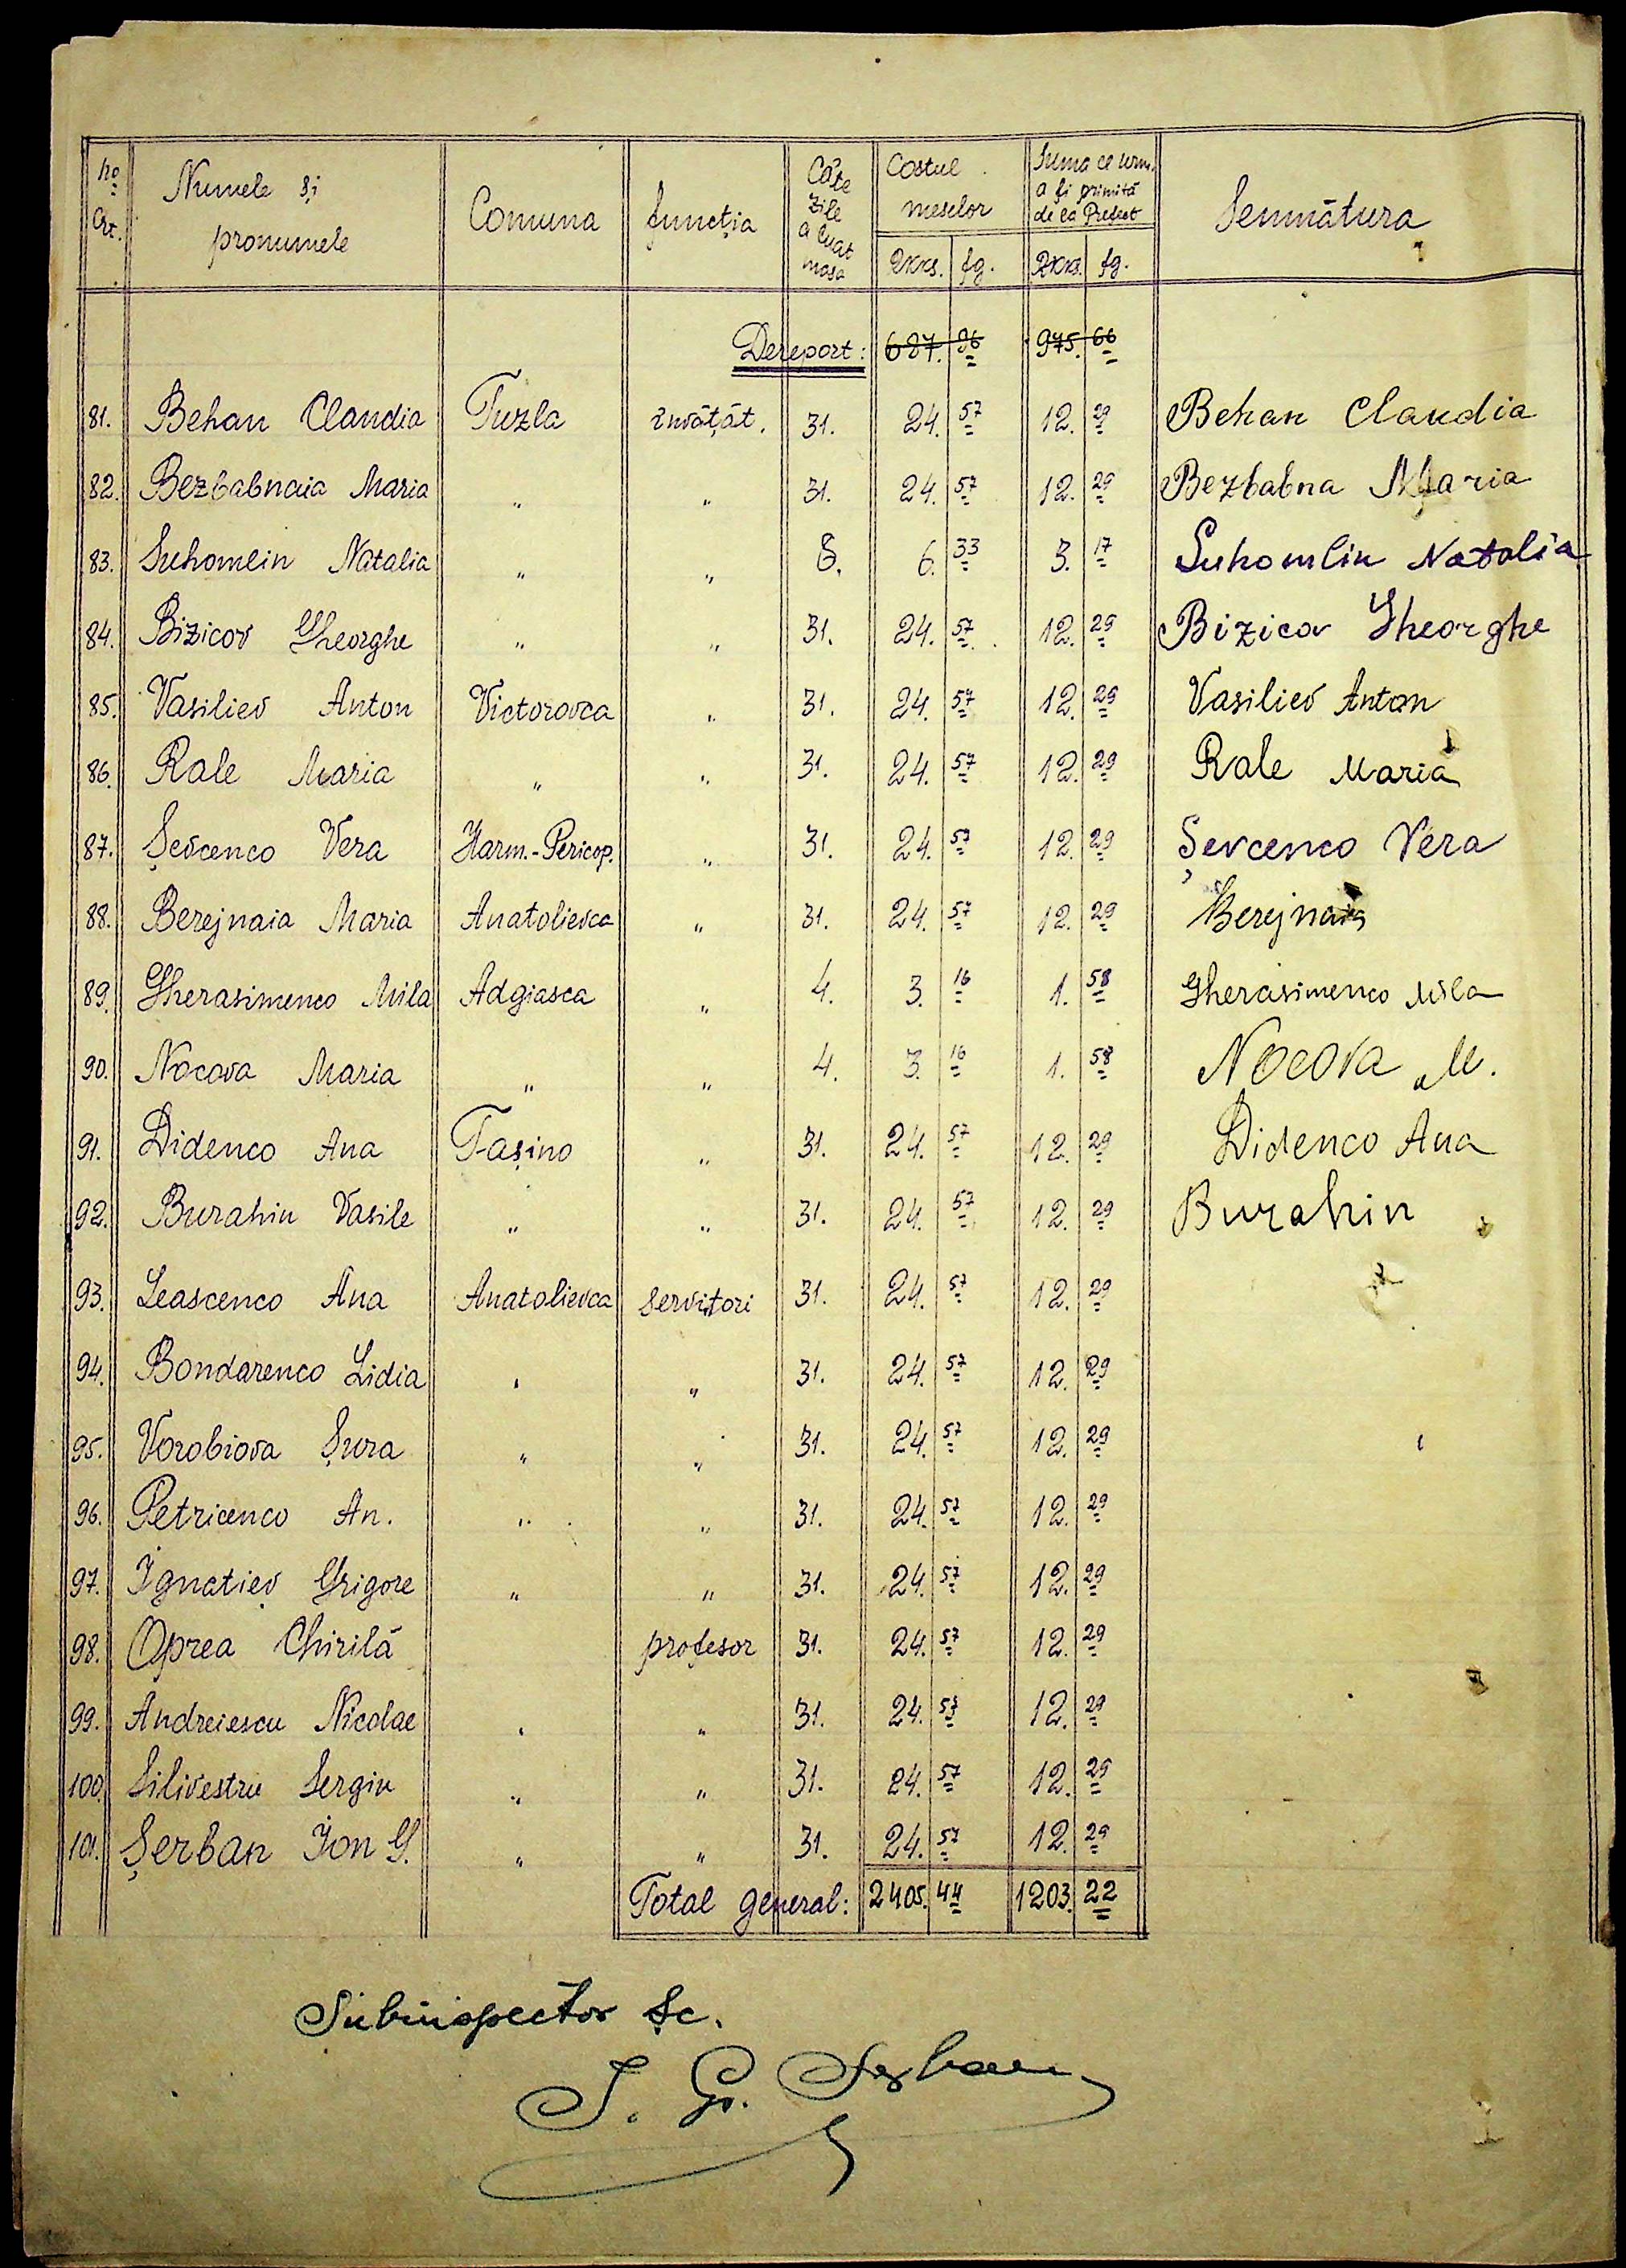 No Crt. Numele și pronumele Comuna funcția Câte zile a luat masa Costul meselor Rkks. fg. Suma ce urm. a fi primită de la Prefect Rkks. fg. Semnătura
Dereport: 627. 96 975. 66
81. Behan Claudia Tuzla învățăt. 31. 24. 57 12. 29 Behan Claudia
82. Bezbabnaia Maria " " 31. 24. 57 12. 29 Bezbabna Maria
83. Suhomlin Natalia " " 8. 6. 33 3. 17 Suhomlin Natalia
84. Bizicov Gheorghe " " 31. 24. 57 12. 29 Bizicov Gheorghe
85. Vasiliev Anton Victorovca " 31. 24. 57 12. 29 Vasiliev Anton
86. Rale Maria " " 31. 24. 57 12. 29 Rale Maria
87. Șevcenco Vera Harm.-Pericop. " 31. 24. 57 12. 29 Șevcenco Vera
88. Berejnaia Maria Anatolievca " 31. 24. 57 12. 29 Berejnaia
89. Gherasimenco Mila Adgiasca " 4. 3. 16 1. 58 Gherasimenco Mila
90. Nocova Maria " " 4. 3. 16 1. 58 Nocova M.
91. Didenco Ana Tașino " 31. 24. 57 12. 29 Didenco Ana
92. Burahin Vasile " " 31. 24. 57 12. 29 Burahin
93. Leascenco Ana Anatolievca servitori 31. 24. 57 12. 29
94. Bondarenco Lidia " " 31. 24. 57 12. 29
95. Vorobiova Șura " " 31. 24. 57 12. 29
96. Petricenco An. " " 31. 24. 57 12. 29
97. Ignatiev Grigore " " 31. 24. 57 12. 29
98. Oprea Chirilă profesor 31. 24. 57 12. 29
99. Andreiescu Nicolae " " 31. 24. 57 12. 29
100. Silivestru Sergiu " " 31. 24. 57 12. 29
101. Șerban Ion G. " " 31. 24. 57 12. 29
Total general: 2405. 44 1203. 22
Subinspector Șc.
I. Gr. Șerban